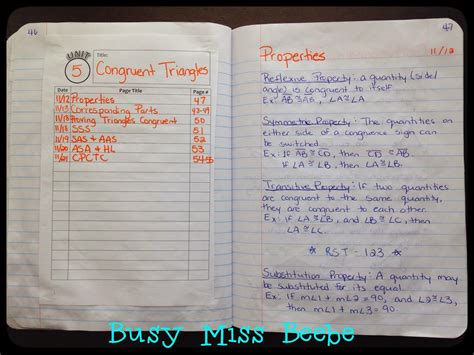 46
UNIT
5
Title:
Congruent Triangles
Date Page Title Page #
11/12 Properties 47
11/13 Corresponding Parts
11/18 Proving Triangles Congruent 50
11/18 SSS 51
11/19 SAS + AAS 52
11/20 ASA + HL 53
11/21 CPCTC 54-55
47
11/12
Properties
Reflexive Property: a quantity (side/
angle) is congruent to itself
Ex: AB ≅ AB, ∠A ≅ ∠A
Symmetric Property: The quantities on
either side of a congruence sign can
be switched.
Ex: If AB ≅ CD, then CD ≅ AB.
If ∠A ≅ ∠B, then ∠B ≅ ∠A.
Transitive Property: If two quantities
are congruent to the same quantity,
they are congruent to each other.
Ex: if ∠A ≅ ∠B, and ∠B ≅ ∠C, then
∠A ≅ ∠C.
* RST - 123 *
Substitution Property: A quantity may
be substituted for its equal.
Ex: If m∠1 + m∠2 = 90, and ∠2 ≅ ∠3,
then m∠1 + m∠3 = 90.
Busy Miss Beebe